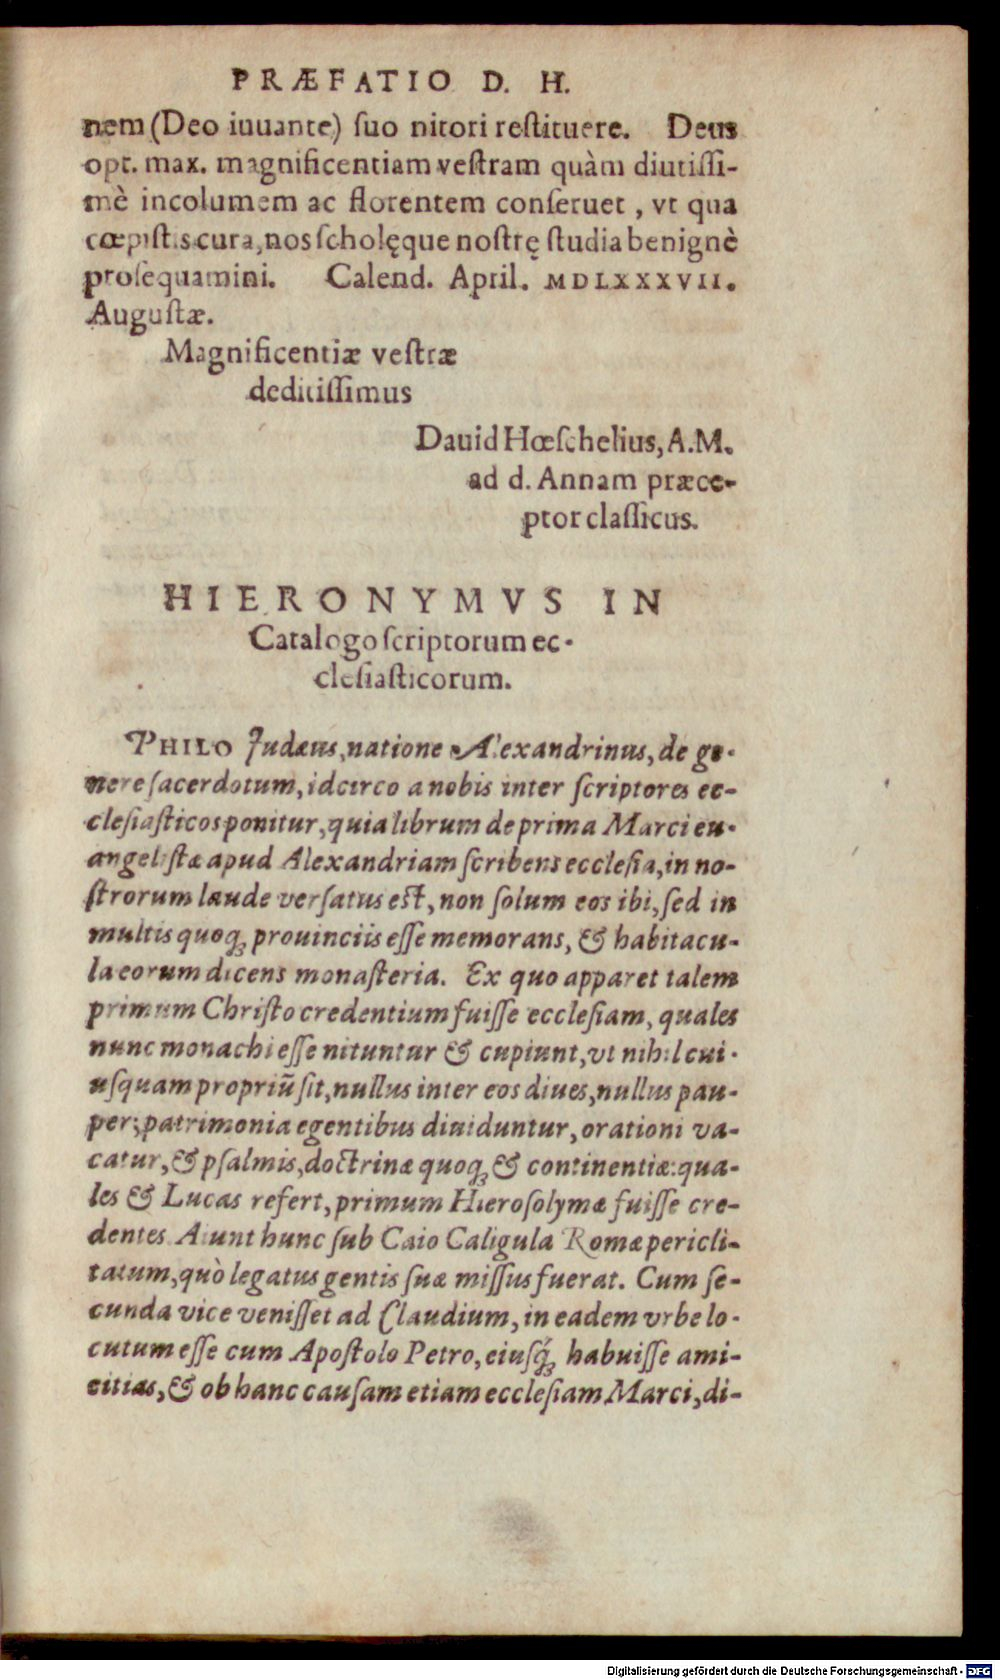 PRÆFATIO D. H.
nem (Deo iuuante) suo nitori restituere. Deus
opt. max. magnificentiam vestram quàm diutissi-
mè incolumem ac florentem conseruet, vt qua
cœpistis cura, nos scholęque nostrę studia benignè
prosequamini. Calend. April. MDLXXXVII.
Augustæ.
Magnificentiæ vestræ
deditissimus
Dauid Hœschelius, A.M.
ad d. Annam præce-
ptor classicus.
HIERONYMVS IN
Catalogo scriptorum ec-
clesiasticorum.
PHILO Judæus, natione Alexandrinus, de ge-
nere sacerdotum, idcirco a nobis inter scriptores ec-
clesiasticos ponitur, quia librum de prima Marci eu-
angelistæ apud Alexandriam scribens ecclesia, in no-
strorum laude versatus est, non solum eos ibi, sed in
multis quoq; prouinciis esse memorans, & habitacu-
la eorum dicens monasteria. Ex quo apparet talem
primum Christo credentium fuisse ecclesiam, quales
nunc monachi esse nituntur & cupiunt, vt nihil cui-
usquam propriũ sit, nullus inter eos diues, nullus pau-
per; patrimonia egentibus diuiduntur, orationi va-
catur, & psalmis, doctrinæ quoq; & continentiæ: qua-
les & Lucas refert, primum Hierosolymæ fuisse cre-
dentes. Aiunt hunc sub Caio Caligula Romæ pericli-
tatum, quò legatus gentis suæ missus fuerat. Cum se-
cunda vice venisset ad Claudium, in eadem vrbe lo-
cutum esse cum Apostolo Petro, eiusq́; habuisse ami-
citias, & ob hanc causam etiam ecclesiam Marci, di-
Digitalisierung gefördert durch die Deutsche Forschungsgemeinschaft - DFG